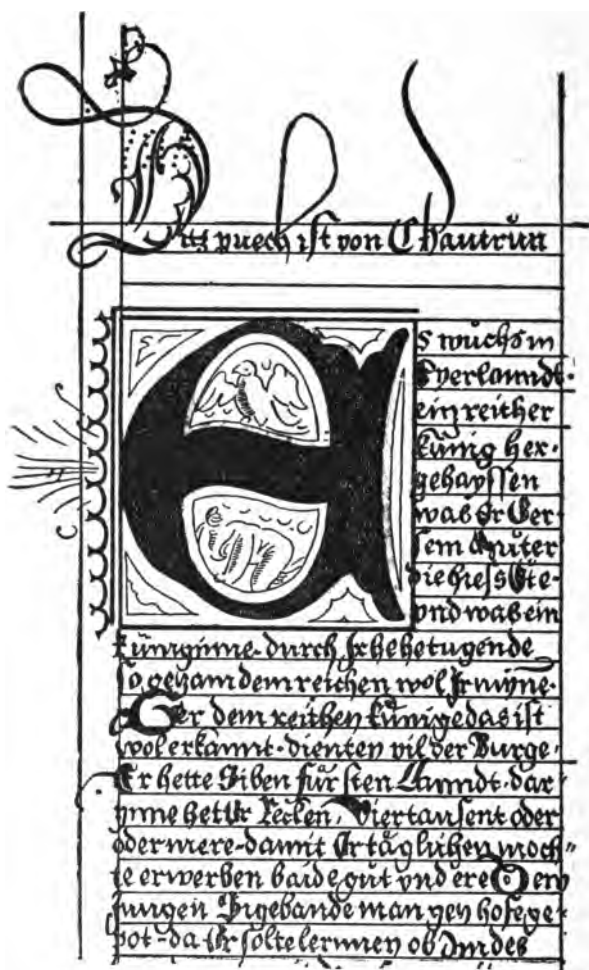 Ditz puech ist von Chautrůn
Es wůchs in
Eyerlanndt·
ein reicher
kůnig her·
gehayssen
was Er Ger
sein Můter
die hiess Ůte·
vnd was ein
kůniginne· durch Ir hehe tugende
so gezam dem reichen wol Ir mynne·
Ger dem reichen kůnige das ist
wol erkannt· dienten vil der Burge·
Er hette Siben fůrsten Lanndt· dar·
ynne het Er Recken, Viertausent oder
oder mere· damit Er tåglichen moch"
te erwerben baide gut vnd ere Dem
jungen Sigebande man gen hofe ge·
pot· da Er solte lernnen ob Im des